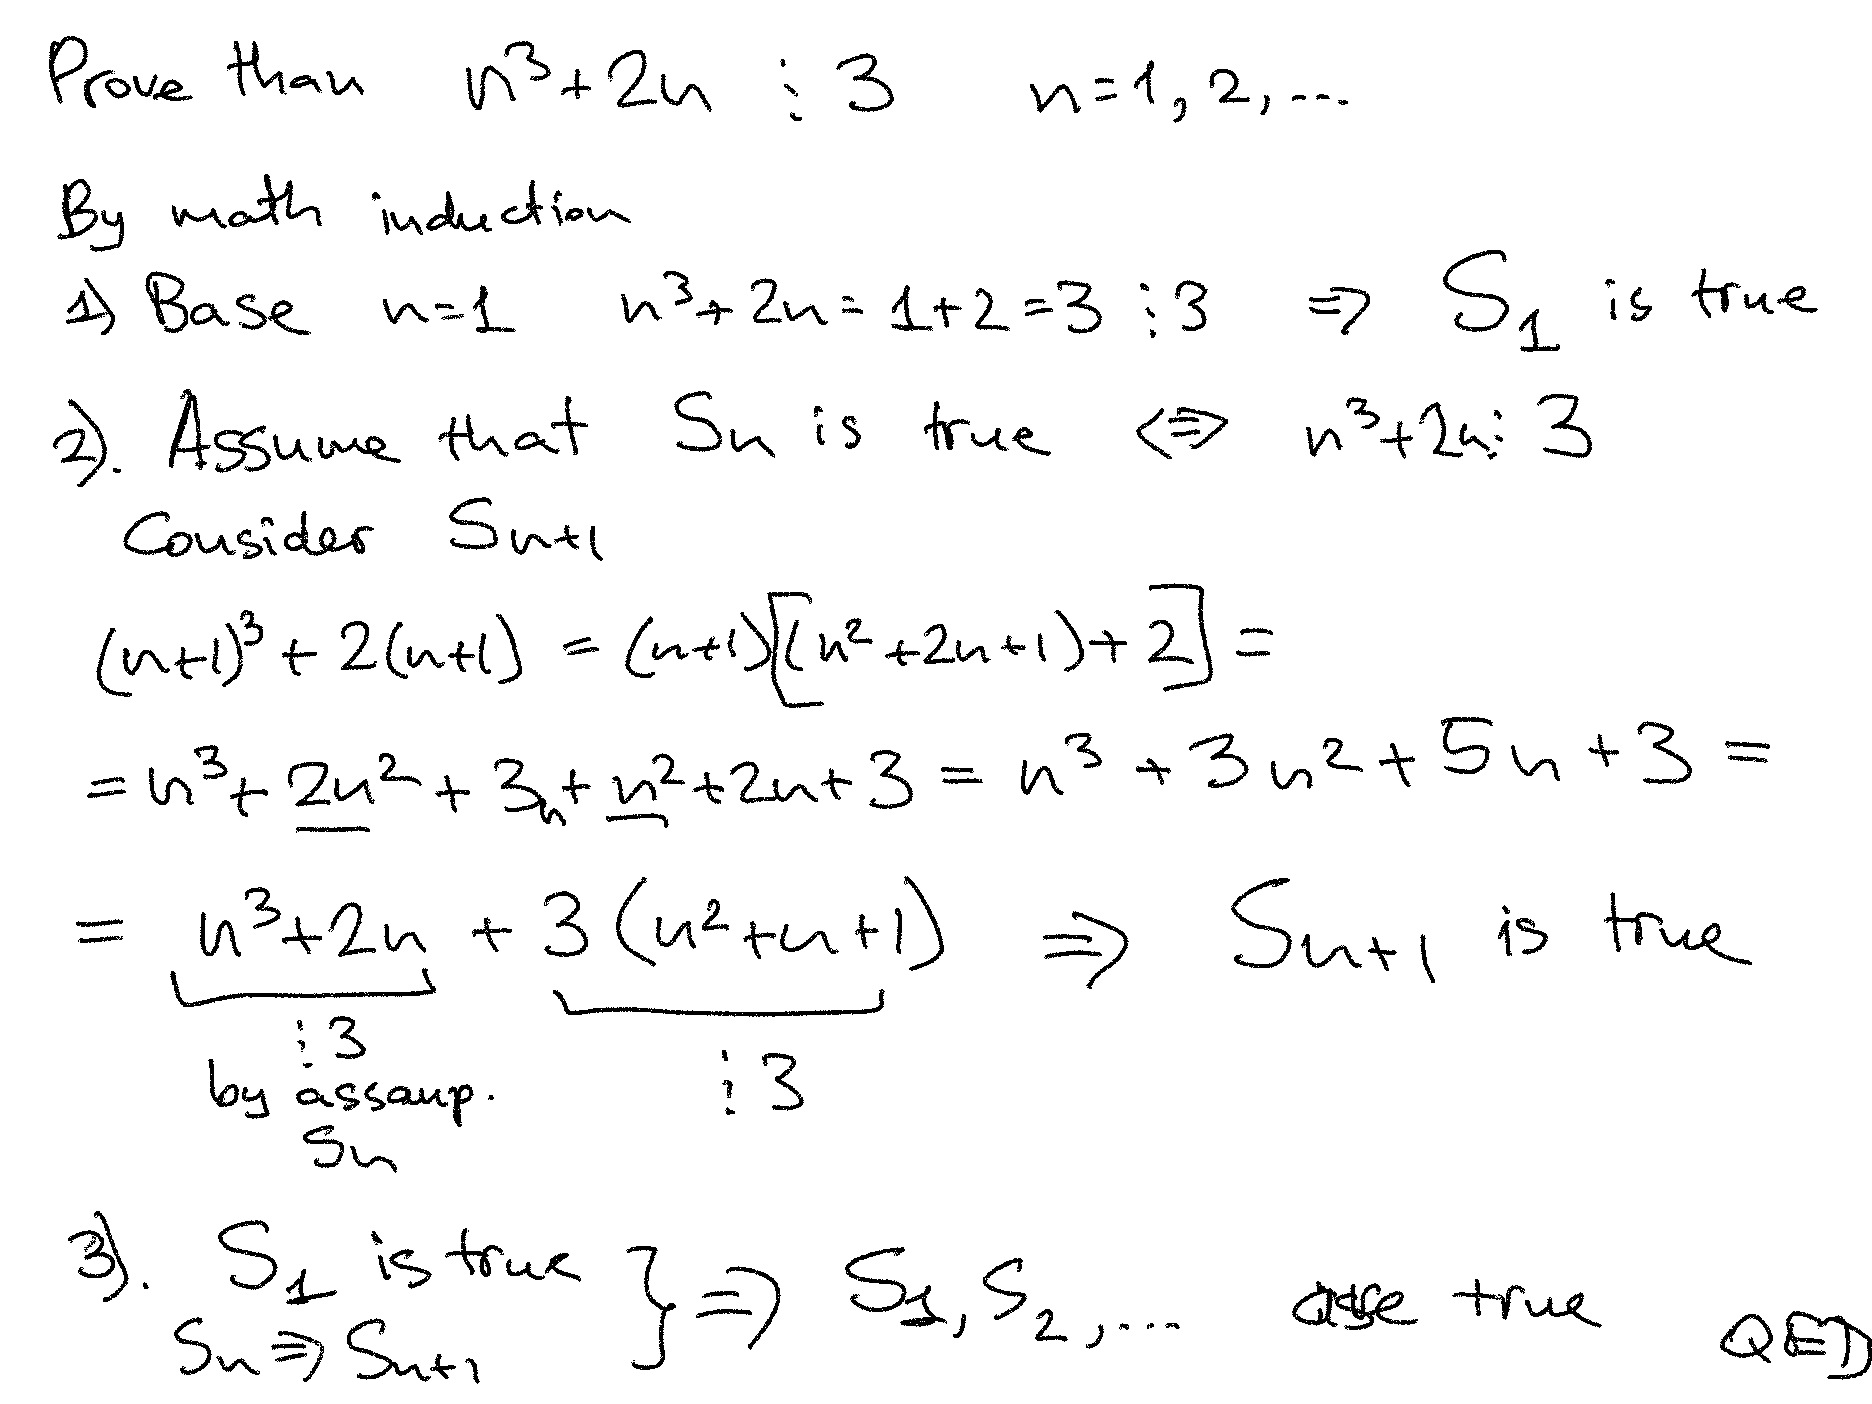 Prove than n³+2n ⋮ 3 n=1, 2, ...
By math induction
1) Base n=1 n³+2n=1+2=3 ⋮ 3 ⇒ S₁ is true
2). Assume that Sn is true ⇔ n³+2n ⋮ 3
Consider Sn+1
(n+1)³ + 2(n+1) = (n+1)[(n²+2n+1)+2] =
= n³+2n²+3n+n²+2n+3 = n³+3n²+5n+3 =
= n³+2n + 3(n²+n+1) ⇒ Sn+1 is true
⋮ 3 ⋮ 3
by assump.
Sn
3). S₁ is true } ⇒ S₁, S₂, ... are true
Sn ⇒ Sn+1 QED